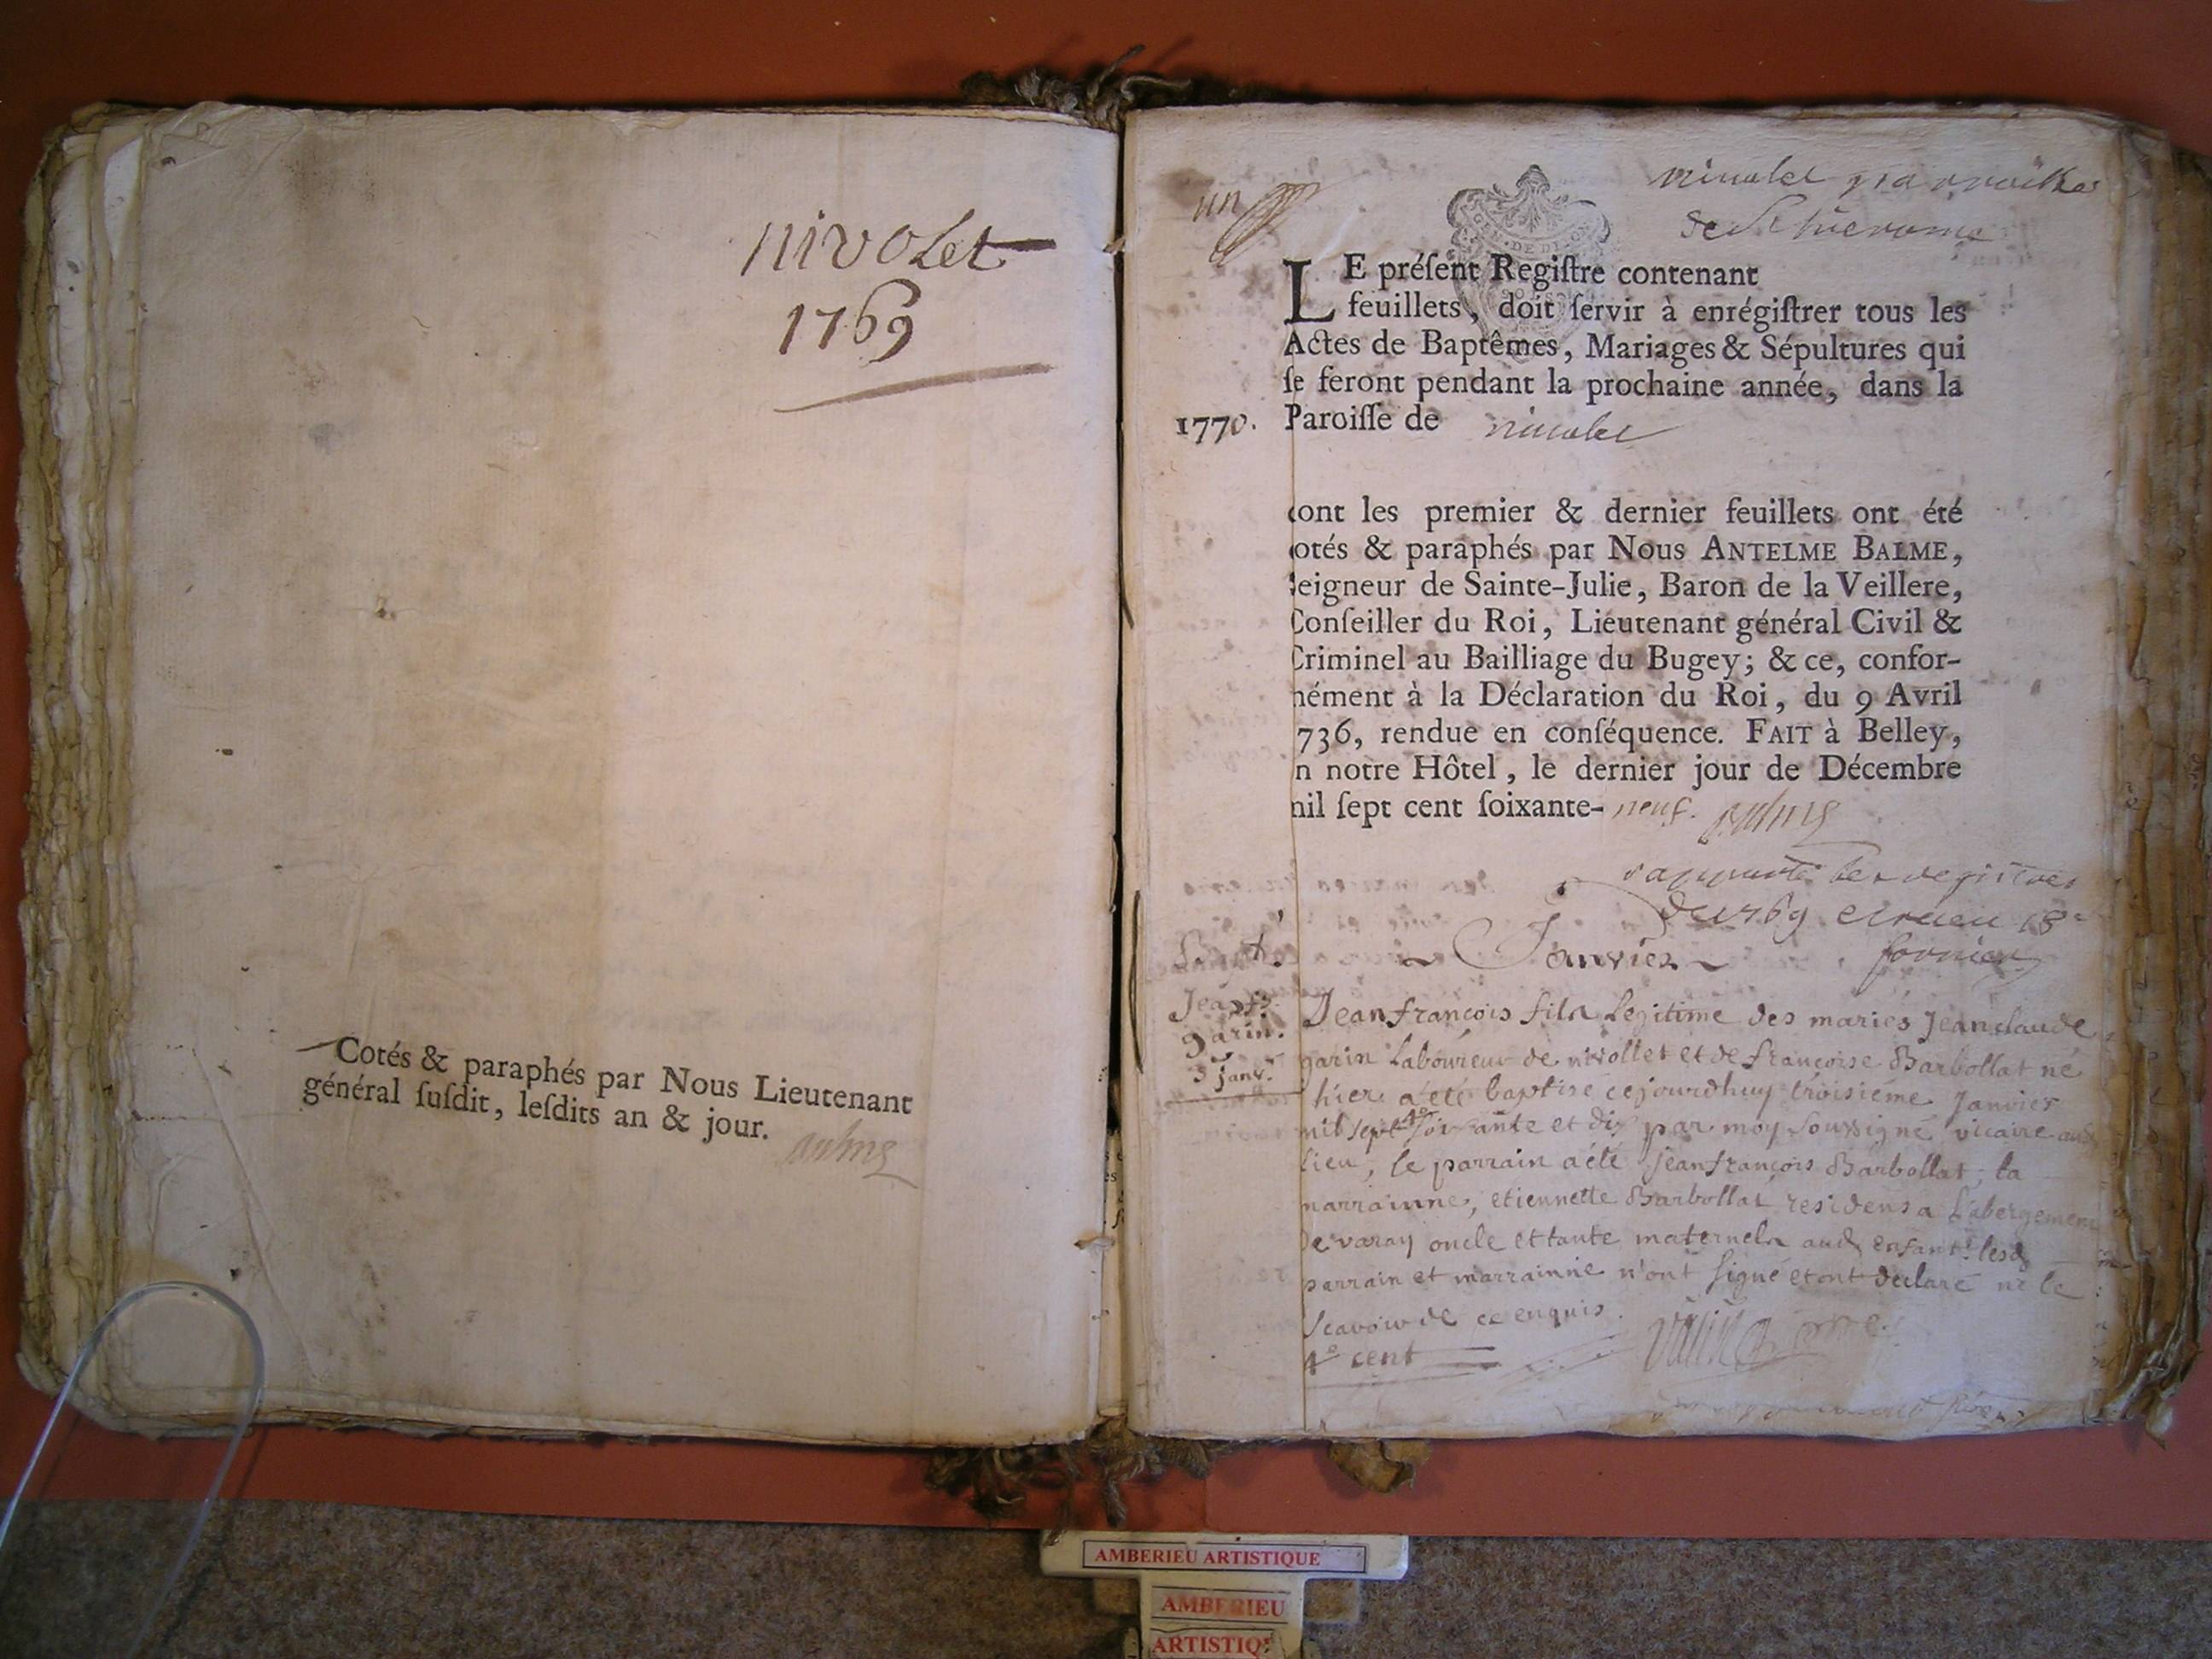 nivolet
1769
Cotés & paraphés par Nous Lieutenant
général ſuſdit, leſdits an & jour.
un
nivolet
de St hierome
GEN. DE DI
LE préſent Regiſtre contenant
feuillets, doit ſervir à enrégiſtrer tous les
Actes de Baptêmes, Mariages & Sépultures qui
ſe feront pendant la prochaine année, dans la
1770. Paroiſſe de nivolet
dont les premier & dernier feuillets ont été
otés & paraphés par Nous ANTELME BALME,
ſeigneur de Sainte-Julie, Baron de la Veillere,
Conſeiller du Roi, Lieutenant général Civil &
Criminel au Bailliage du Bugey; & ce, confor-
mément à la Déclaration du Roi, du 9 Avril
736, rendue en conſéquence. FAIT à Belley,
n notre Hôtel, le dernier jour de Décembre
mil ſept cent ſoixante- neuf.
rapporté les registres
de 1769
Bapt.
Janvier
Jean fs.
garin.
3 janv.
Jean françois fils legitime des mariés Jean claude
garin laboureur de nivollet et de françoise Barbollat né
hier a été baptisé cejourdhuy troisiéme Janvier
mil sept 4º soixante et dix par moy soussigné vicaire aud
lieu, le parrain a été jean françois Barbollat, la
marrainne, etiennette Barbollat residens a l'abergement
de varay oncle et tante maternels aud enfant. lesd
parrain et marrainne n'ont signé et ont declaré ne le
scavoir de ce enquis.
4º cent
AMBERIEU ARTISTIQUE
AMBERIEU
ARTISTIQ